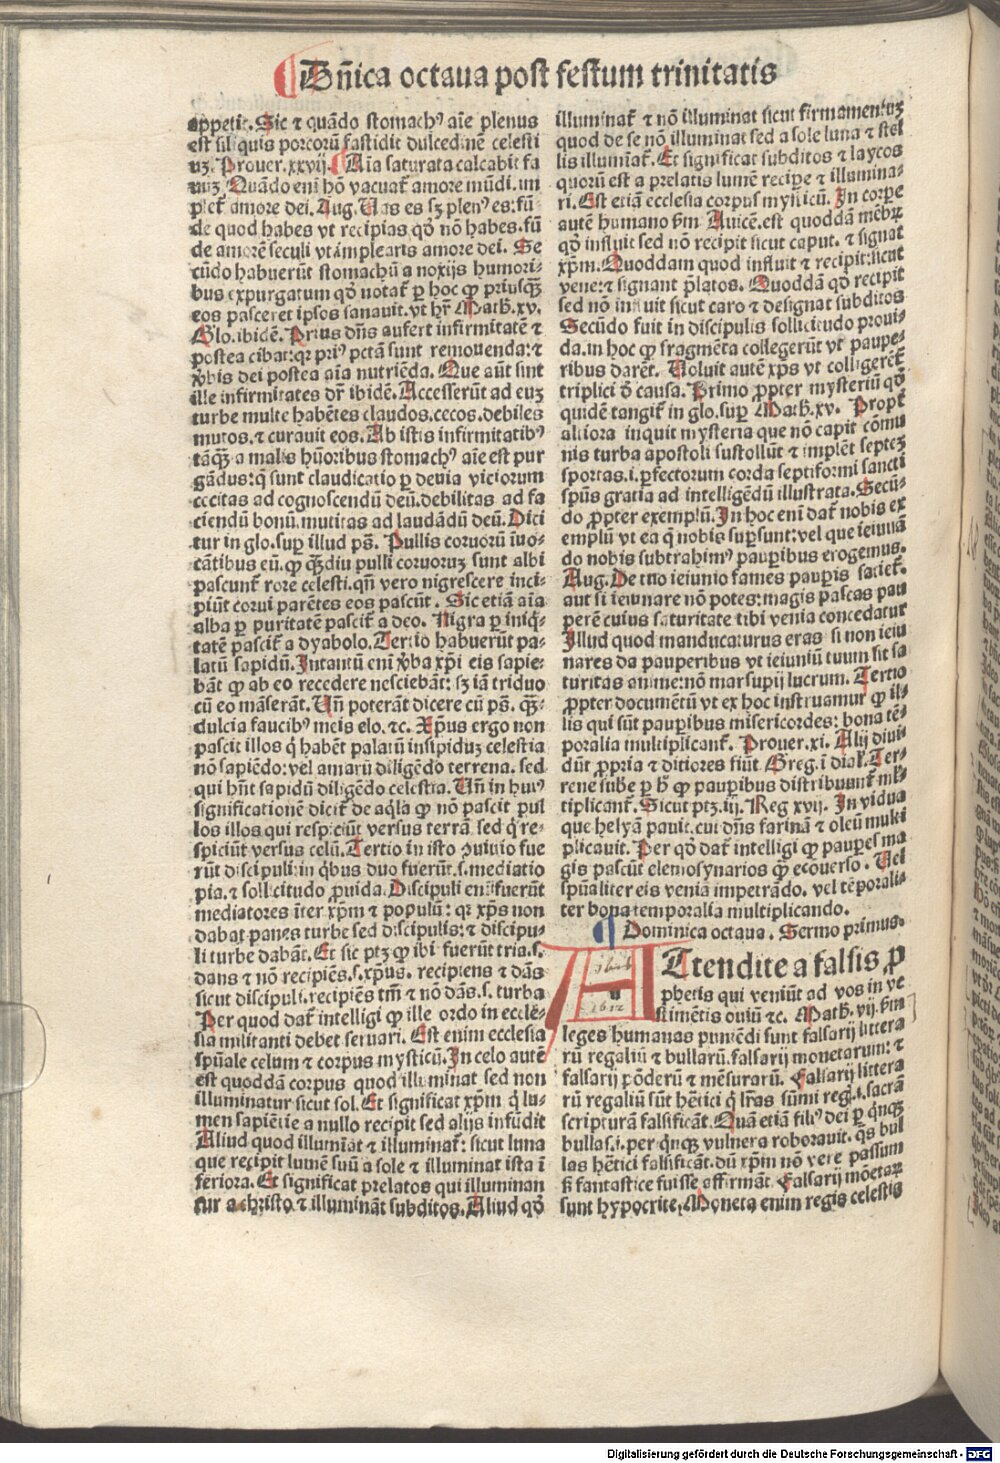 Dñica octaua post festum trinitatis
appetit. Sic ⁊ quãdo stomachꝰ aĩe plenus
est siliquis porcorũ fastidit dulcedinẽ celesti
uꝫ. Prouer. xxvij. Aĩa saturata calcabit fa
uuꝫ. Quãdo enĩ hõ vacuat᷑ amore mũdi. im
plet᷑ amore dei. Aug. Uas es sꝫ plenꝰ es: fũ
de quod habes vt recipias qđ nõ habes. fũ
de amorẽ seculi vt implearis amore dei. Se
cũdo habuerũt stomachũ a noxijs humori-
bus expurgatum qđ notat᷑ ꝑ hoc ꝙ priusqꝫ̃
eos pasceret ipsos sanauit. vt hr̃ Math. xv.
Glo. ibidẽ. Prius dñs aufert infirmitatẽ ⁊
postea cibat: qꝛ priꝰ pctã sunt remouenda: ⁊
ꝟbis dei postea aĩa nutriẽda. Que aũt sint
ille infirmitates dr̃ ibidẽ. Accesserũt ad euꝫ
turbe multe habẽtes claudos. cecos. debiles
mutos. ⁊ curauit eos. Ab istis infirmitatibꝰ
tãqꝫ̃ a malis hũoribus stomachꝰ aĩe est pur
gãdus: q̃ sunt claudicatio ꝑ deuia viciorum
cecitas ad cognoscendũ deũ. debilitas ad fa
ciendũ bonũ. mutitas ad laudãdũ deũ. Dici
tur in glo. suꝑ illud ps̃. Pullis coruorũ ĩuo-
cãtibus eũ. ꝙ qꝫ̃diu pulli coruoruꝫ sunt albi
pascunt᷑ rore celesti. qñ vero nigrescere inci-
piũt corui parẽtes eos pascũt. Sic etiã aĩa
alba ꝑ puritatẽ pascit᷑ a deo. Nigra ꝑ iniqͥ-
tatẽ pascit᷑ a dyabolo. Tertio habuerũt pa-
latũ sapidũ. Intantũ enĩ ꝟba xp̃i eis sapie-
bãt ꝙ ab eo recedere nesciebãt: sꝫ iã triduo
cũ eo mãserãt. Uñ poterãt dicere cũ ps̃. qꝫ̃-
dulcia faucibꝰ meis elo. ⁊c. Xp̃us ergo non
pascit illos q̇ habẽt palatũ insipiduꝫ celestia
nõ sapiẽdo: vel amarũ diligẽdo terrena. sed
qui hñt sapidũ diligẽdo celestia. Uñ in huiꝰ
significationẽ dicit᷑ de aqͥla ꝙ nõ pascit pul
los illos qui respiciũt versus terrã sed q̇ re-
spiciũt versus celũ. Tertio in isto ꝯuiuio fue
rũt discipuli: in qͥbus duo fuerũt. s. mediatio
pia. ⁊ sollicitudo ꝓuida. Discipuli enĩ fuerũt
mediatores ĩter xp̃m ⁊ populũ: qꝛ xp̃s non
dabat panes turbe sed discipulis: ⁊ discipu-
li turbe dabãt. Et sic ptꝫ ꝙ ibi fuerũt tria. s.
dans ⁊ nõ recipiẽs. s. xp̃us. recipiens ⁊ dãs
sicut discipuli. recipiẽs tm̃ ⁊ nõ dãs. s. turba
Per quod dat᷑ intelligi ꝙ ille ordo in eccle-
sia militanti debet seruari. Est enim ecclesia
spũale celum ⁊ corpus mysticũ. In celo autẽ
est quoddã corpus quod illuminat sed non
illuminatur sicut sol. Et significat xp̃m q̇ lu-
men sapiẽtie a nullo recipit sed alijs infũdit
Aliud quod illumĩat ⁊ illuminat᷑: sicut luna
que recipit lumẽ suũ a sole ⁊ illuminat ista ĩ
feriora. Et significat prelatos qui illuminan
tur a christo ⁊ illuminãt subditos. Aliud qđ
illuminat᷑ ⁊ nõ illuminat sicut firmamentuꝫ
quod de se nõ illuminat sed a sole luna ⁊ stel
lis illumĩat᷑. Et significat subditos ⁊ laycos
quorũ est a prelatis lumẽ recipe ⁊ illumina-
ri. Est etiã ecclesia corpus mysticũ. In corpe
autẽ humano ẜm Auicẽ. est quoddã mẽbrꝝ
qđ influit sed nõ recipit sicut caput. ⁊ signat
xp̃m. Quoddam quod influit ⁊ recipit: sicut
vene: ⁊ signant p̃latos. Quoddã qđ recipit
sed nõ influit sicut caro ⁊ designat subditos
Secũdo fuit in discipulis sollicitudo proui-
da. in hoc ꝙ fragmẽta collegerũt vt paupe-
ribus darẽt. Uoluit autẽ xp̃s vt colligerẽt᷑
triplici ð causa. Primo ꝓpter mysteriũ qđ
quidẽ tangit᷑ in glo. suꝑ Math. xv. Propt̾
altiora inquit mysteria que nõ capit cõmu
nis turba apostoli sustollũt ⁊ implẽt septeꝫ
sportas. i. ꝑfectorum corda septiformi sancti
spũs gratia ad intelligẽdũ illustrata. Secũ-
do ꝓpter exemplũ. In hoc enĩ dat᷑ nobis ex
emplũ vt ea q̃ nobis suꝑsunt: vel que ieiunã
do nobis subtrahimꝰ pauꝑibus erogemus.
Aug. De tuo ieiunio fames pauꝑis saciet᷑.
aut si ieiunare nõ potes: magis pascas pau
perẽ cuius saturitate tibi venia concedatur
Illud quod manducaturus eras si non ieiu
nares da pauperibus vt ieiuniũ tuum sit sa
turitas anime: nõ marsupij lucrum. Tertio
ꝓpter documẽtũ vt ex hoc instruamur ꝙ il-
lis qui sũt pauꝑibus misericordes: bona tẽ-
poralia multiplicant᷑. Prouer. xi. Alij diui
dũt ꝓpria ⁊ ditiores fiũt Greg. ĩ dial. Ter-
rene suƀe ꝑ ħ ꝙ pauꝑibus distribuunt᷑ ml̃-
tiplicant᷑. Sicut ptꝫ. iij. Reg xvij. In vidua
que helyã pauit. cui dñs farinã ⁊ oleũ multi
plicauit. Per qđ dat᷑ intelligi ꝙ pauꝑes ma
gis pascũt elemosynarios q̃ ecõuerso. Uel
spũaliter eis veniã impetrãdo. vel tẽporali-
ter bona temporalia multiplicando.
Dominica octaua. Sermo primus.
ATtendite a falsis ꝓ
phetis qui veniũt ad vos in ve
stimẽtis ouiũ ⁊c. Math. vij. ẜm
leges humanas puniẽdi sunt falsarij littera
rũ regaliũ ⁊ bullarũ. falsarij monetarum: ⁊
falsarij põderũ ⁊ mẽsurarũ. Falsarij littera
rũ regaliũ sũt hẽtici q̇ lr̃as sũmi reg̾. i. sacrã
scripturã falsificãt. Quã etiã filiꝰ dei ꝑ qͥnqꝫ
bullas. i. per qͥnqꝫ vulnera roborauit. q̃s bul
las hẽtici falsificãt. dũ xp̃m nõ vere passum
ẜ fantastice fuisse affirmãt. Falsarij mõetaꝝ
sunt hypocrite. Moneta enim regis celestis
1612
Digitalisierung gefördert durch die Deutsche Forschungsgemeinschaft - DFG